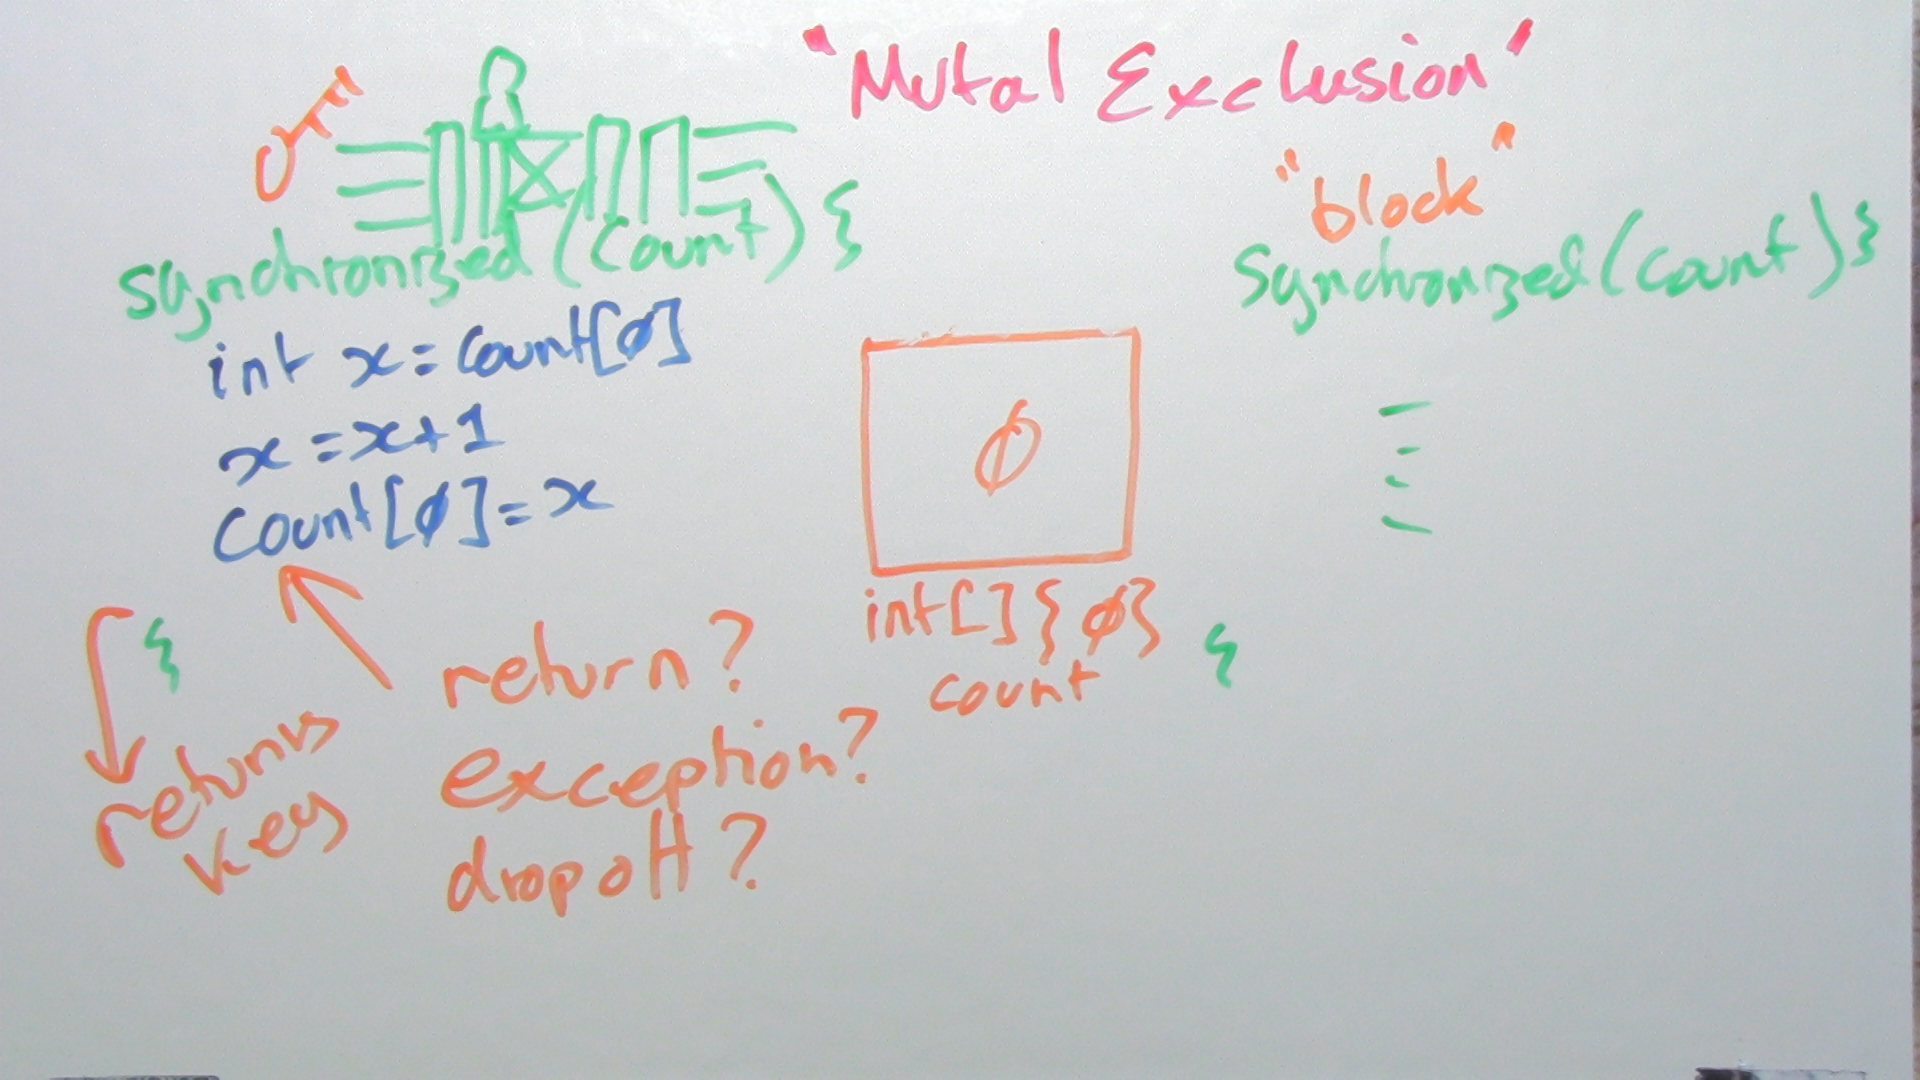 "Mutal Exclusion"
"block"
synchronized (count) {
int x = count[0]
x = x + 1
count[0] = x
{
returns
key
return?
exception?
dropoff?
0
int[] { 0 }
count
synchronized (count) }
{